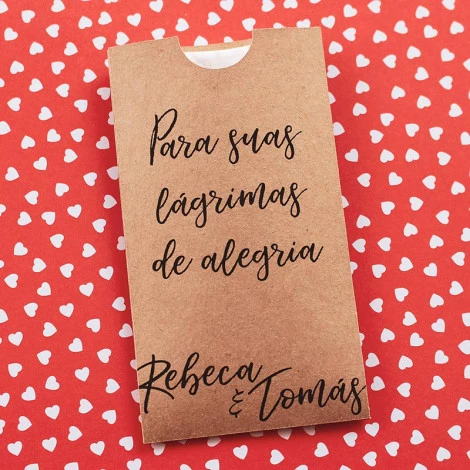 Para suas
lágrimas
de alegria
Rebeca
& Tomás